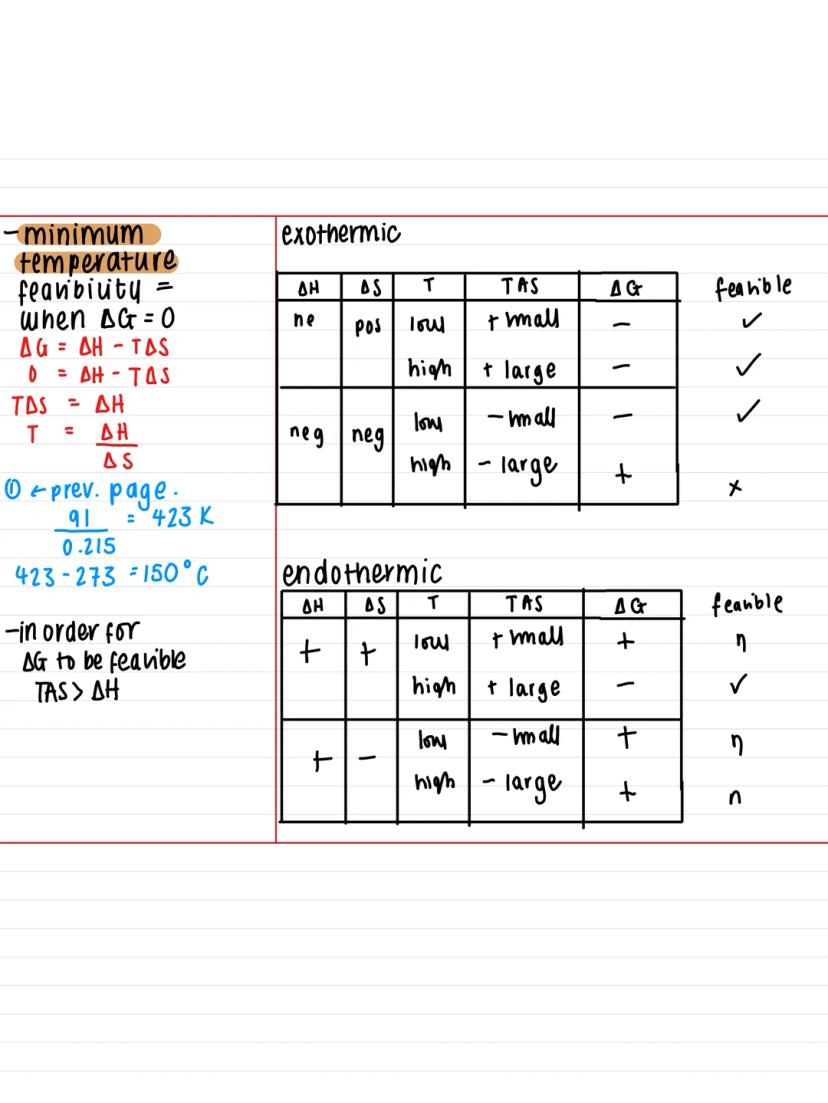 -minimum
temperature
feasibility =
when ΔG = 0
ΔG = ΔH - TΔS
0 = ΔH - TΔS
TΔS = ΔH
T = ΔH
ΔS
① ← prev. page.
91 = 423 K
0.215
423 - 273 = 150°C
-in order for
ΔG to be feasible
TΔS > ΔH
exothermic
ΔH ΔS T TΔS ΔG feasible
ne pos low + small - ✓
high + large - ✓
neg neg low - small - ✓
high - large + x
endothermic
ΔH ΔS T TΔS ΔG feasible
+ + low + small + n
high + large - ✓
+ - low - small + n
high - large + n